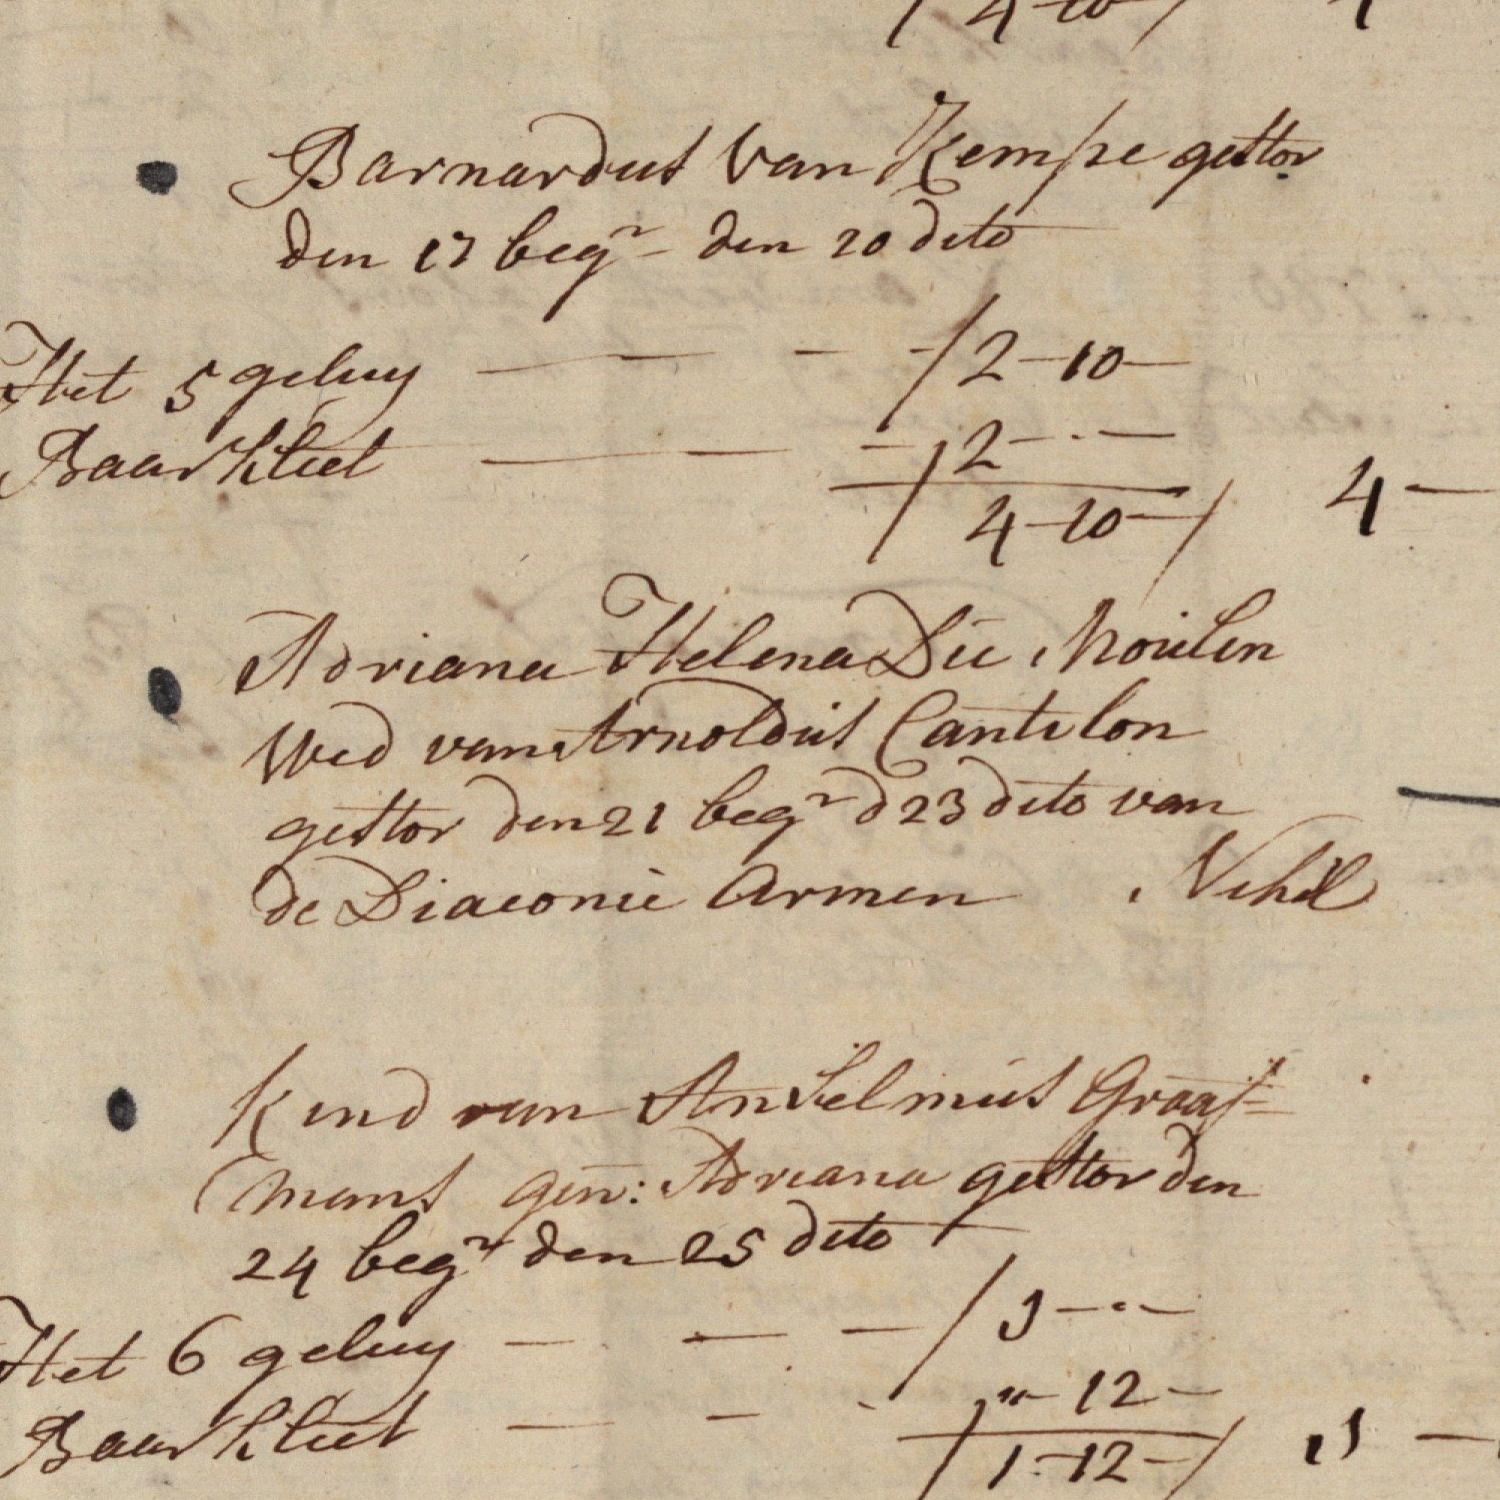 / 4-10-/
Barnardus van Kempe gestor
den 17 begr den 20 dito
Het 5 geluy — — — — / 2-10-
Baarkleet — — — / 2-.-
/ 4-10-/ 4-
Adriana Helena Du Moulen
Wed van Arnoldus Cantelon
gestor den 21 begr d 23 dito van
de Diaconie Armen Nihil
Kind van Anselmus Graaf=
mans gen: Adriana gestor den
24 begr den 25 dito
Het 6 geluy — — — / 1-"-
Baarkleet — — - / "-12-
/ 1-12-/ 1-